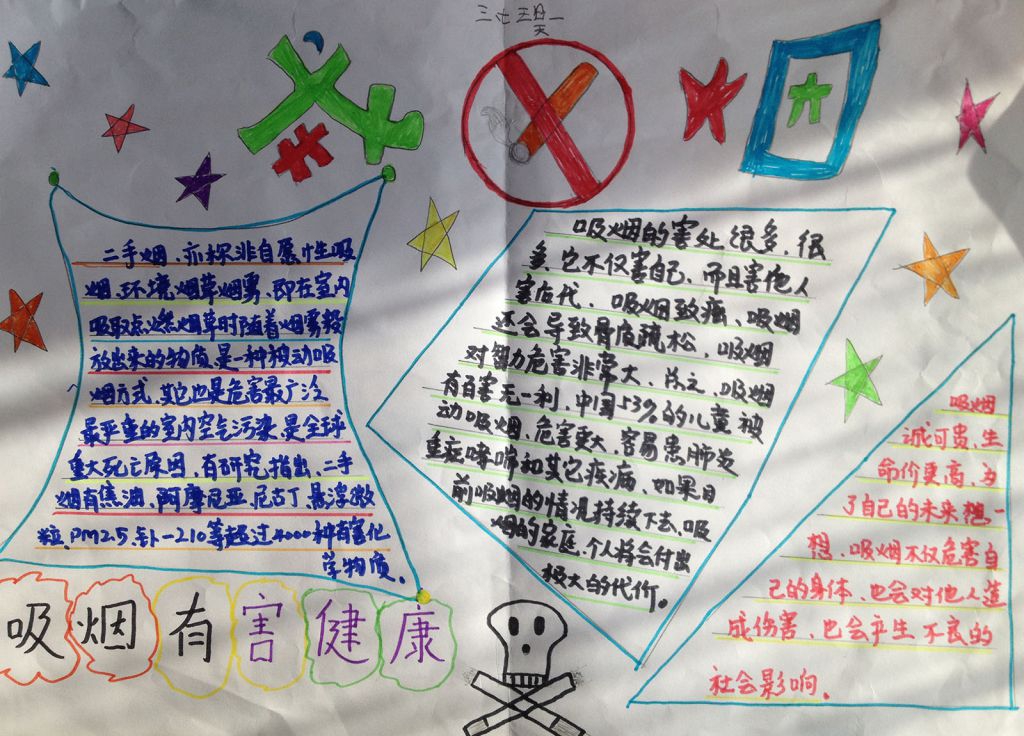 二手烟、亦称非自愿性吸
烟、环境烟草烟雾、即在室内
吸取点燃烟草时随着烟雾释
放出来的物质、是一种被动吸
烟方式、其它也是危害最广泛
最严重的室内空气污染、是全球
重大死亡原因、有研究指出、二手
烟有焦油、阿摩尼亚、尼古丁、悬浮微
粒、PM2.5、钋-210等超过4000种有害化
学物质。
吸烟的害处很多、很
多、它不仅害自己、而且害他人
害后代、吸烟致癌、吸烟
还会导致骨质疏松、吸烟
对智力危害非常大、总之、吸烟
有百害无一利、中国53%的儿童被
动吸烟、危害更大、容易患肺炎
重症哮喘和其它疾病、如果目
前吸烟的情况持续下去、吸
烟的家庭、个人将会付出
极大的代价。
吸烟
诚可贵、生
命价更高、为
了自己的未来想一
想、吸烟不仅危害自
己的身体、也会对他人造
成伤害、也会产生不良的
社会影响。
吸烟有害健康